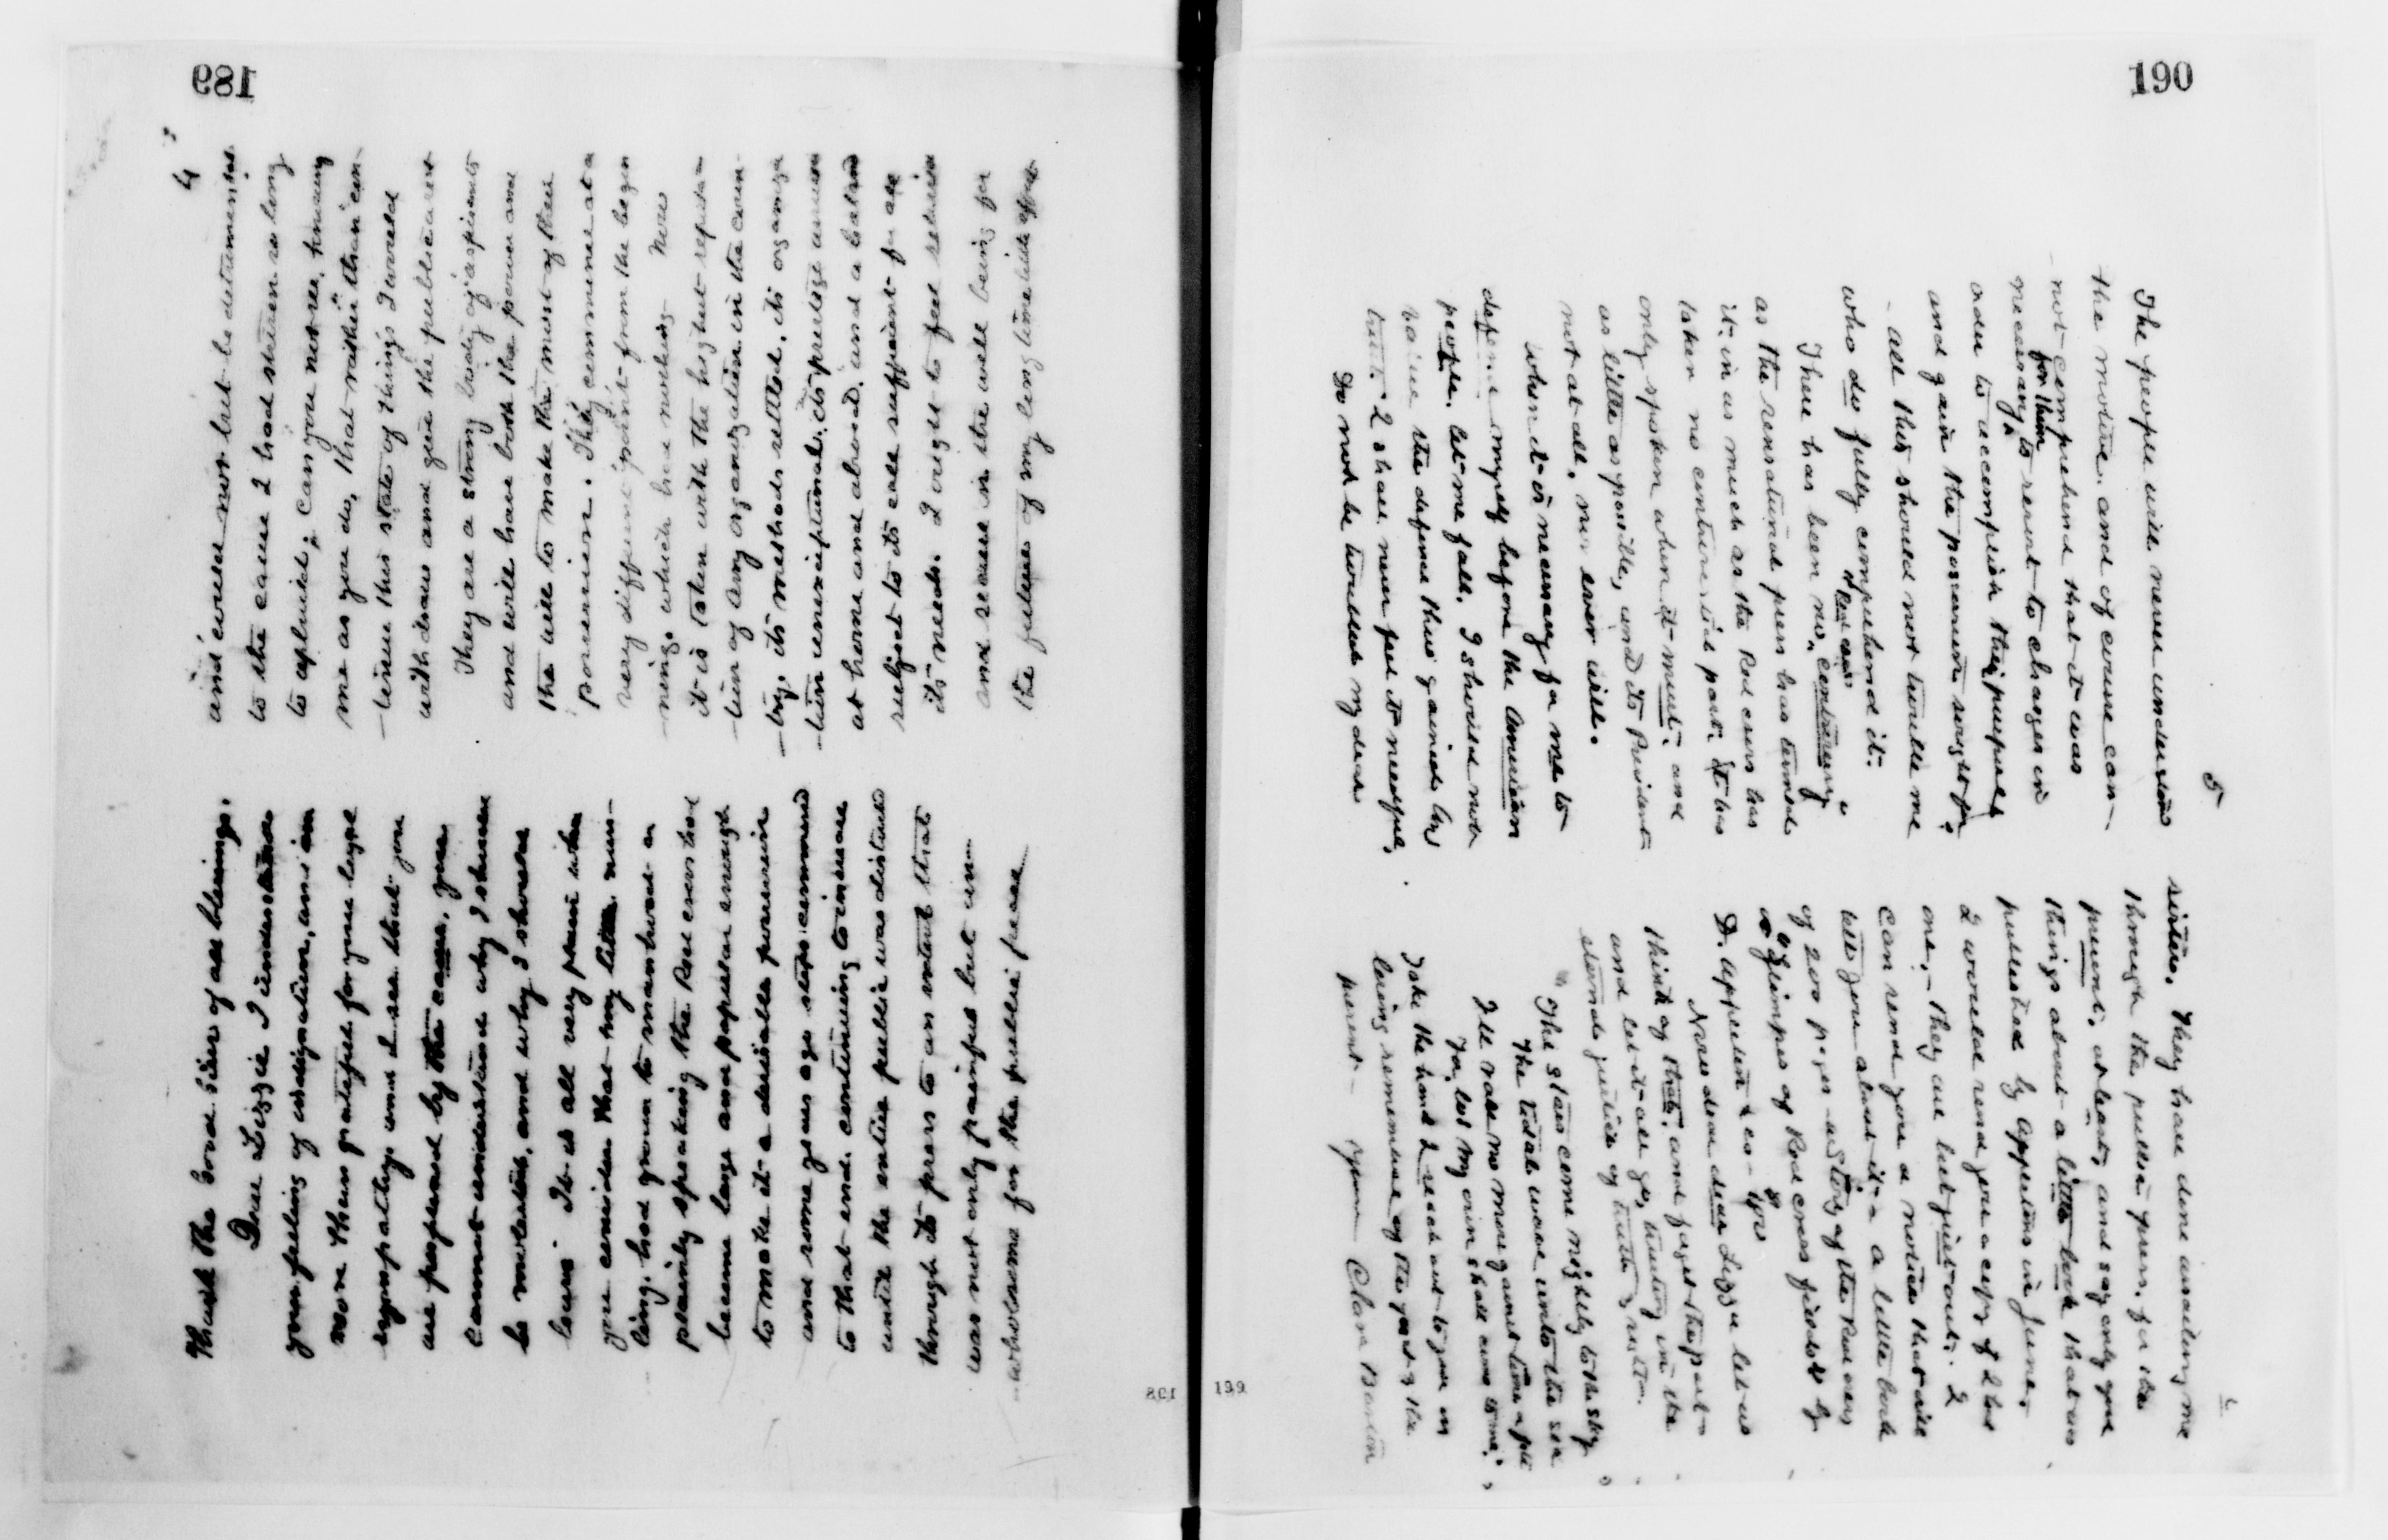 189
Thank the Good Giver of all blessings.
Dear Lizzie I understand
your feeling of indignation, and am
more than grateful for your loyal
sympathy and I see that you
are perplexed by the cause, you
cannot understand why I should
be molested, and why I should
leave. It is all very plain when
you consider that my little nurs-
ling, had grown to manhood - or
plainly speaking the Red cross had
become large and popular enough
to make it a desirable possession
and some years ago steps commenced
to that end, continuing to increase
until the entire public was disturbed
through its press to an extent that
was not only painful but un-
-wholesome for the public peace
4
and could not but be detrimental
to the cause I had striven so long
to upbuild; can you not see, knowing
me as you do, that rather than con-
-tinue this state of things I would
withdraw and give the public a rest
They are a strong body of aspirants
and will have both the power and
the will to make the most of their
possession. They commence at a
very different point from the begin
-ning, which had nothing. Now
it is taken with the highest reputa-
-tion of any organization in the coun-
-try, its methods settled, its organiza
-tion unexceptional, its prestige
at home and abroad, and a balance
subject to its call sufficient for all
its needs. I ought to feel
and secure in the well being for
the future of my long time
190
5
The people will never understand
the motive, and of course can-
-not comprehend that it was
necessary for them to resort to charges in
order to accomplish their purpose
and gain the possession sought for.
- all this should not trouble me
who do fully comprehend it.
There has been no "Red cross controversy"
as the sensational press has termed
it, in as much as the Red cross has
taken no controversial part. It has
only spoken when it must, and
as little as possible, and its President
not at all, nor ever will.
When it is necessary for me to
defend myself before the American
people, let me fall. I should not
value the defense thus gained by
truth. I shall never feel it needful.
Do not be troubled my dear
6
sister. They have done assailing me
through the public press, for the
present, at least, and say only good
things about a little book that was
published by Appletons in June,
I would send you a copy if I had
one, - they are but just out. I
can send you a notice that will
tell you about it - a little book
of 200 pages - a story of the Red cross
or "Glimpses of Red cross field life" by
D. Appleton & co - N.Y.
Now dear dear Lizzie let us
think of that, and forget the past -
and let it all go, trusting in the
eternal justice of truth & right.
"The stars come nightly to the sky
The tidal wave unto the sea
I'll rave no more gainst time or fate
For, lo! my own shall come to me".
Take the hand I reach out to you in
loving remembrance of the past & the
present - Yours Clara Barton
108
109